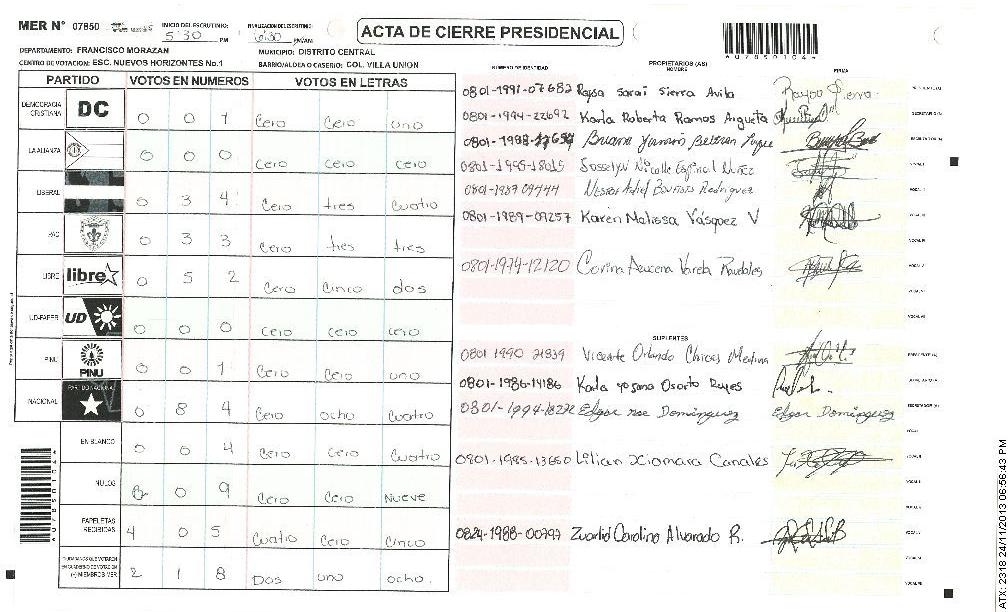 MER N° 07850
INICIO DEL ESCRUTINIO: 5:30 PM
FINALIZACION DEL ESCRUTINIO: 6:30 PM
ACTA DE CIERRE PRESIDENCIAL
DEPARTAMENTO: FRANCISCO MORAZAN
MUNICIPIO: DISTRITO CENTRAL
CENTRO DE VOTACION: ESC. NUEVOS HORIZONTES No.1
BARRIO/ALDEA O CASERIO: COL. VILLA UNION
PARTIDO VOTOS EN NUMEROS VOTOS EN LETRAS
DEMOCRACIA CRISTIANA DC 0 0 1 Cero Cero uno
LA ALIANZA 0 0 0 Cero Cero cero
LIBERAL 0 3 4 Cero tres cuatro
PAC 0 3 3 Cero tres tres
LIBRE libre 0 5 2 Cero Cinco dos
UD-FAPER UD 0 0 0 Cero Cero Cero
PINU PINU 0 0 1 Cero Cero uno
NACIONAL PARTIDO NACIONAL 0 8 4 Cero ocho Cuatro
EN BLANCO 0 0 4 Cero Cero Cuatro
NULOS 0 0 9 Cero Cero Nueve
PAPELETAS RECIBIDAS 4 0 5 Cuatro Cero Cinco
CIUDADANOS QUE VOTARON EN CUADERNO DE VOTACION (+) MIEMBROS MER 2 1 8 Dos uno ocho.
A078501044
NUMERO DE IDENTIDAD PROPIETARIOS (AS) NOMBRE FIRMA
0801-1991-07682 Raysa Sarai Sierra Avila
0801-1994-22692 Karla Roberta Ramos Argueta
0801-1995-18015 Nicolle Espinal Nuñez
Rodriguez
0801-1989-09257 Karen Melissa Vásquez V
0801-1974-12120 Corina Azucena Varela Raudales
SUPLENTES
0801 1990 21839 Vicente Orlando Chicas Medina
0801-1986-14186 Karla Yosana Osorto Reyes
0801-1994-18272 Edgar noe Dominguez Edgar Dominguez
0801-1985-13650 Lilian Xiomara Canales
0824-1988-00797 Carolina Alvarado R.
ATX: 2318 24/11/2013 06:56:43 PM